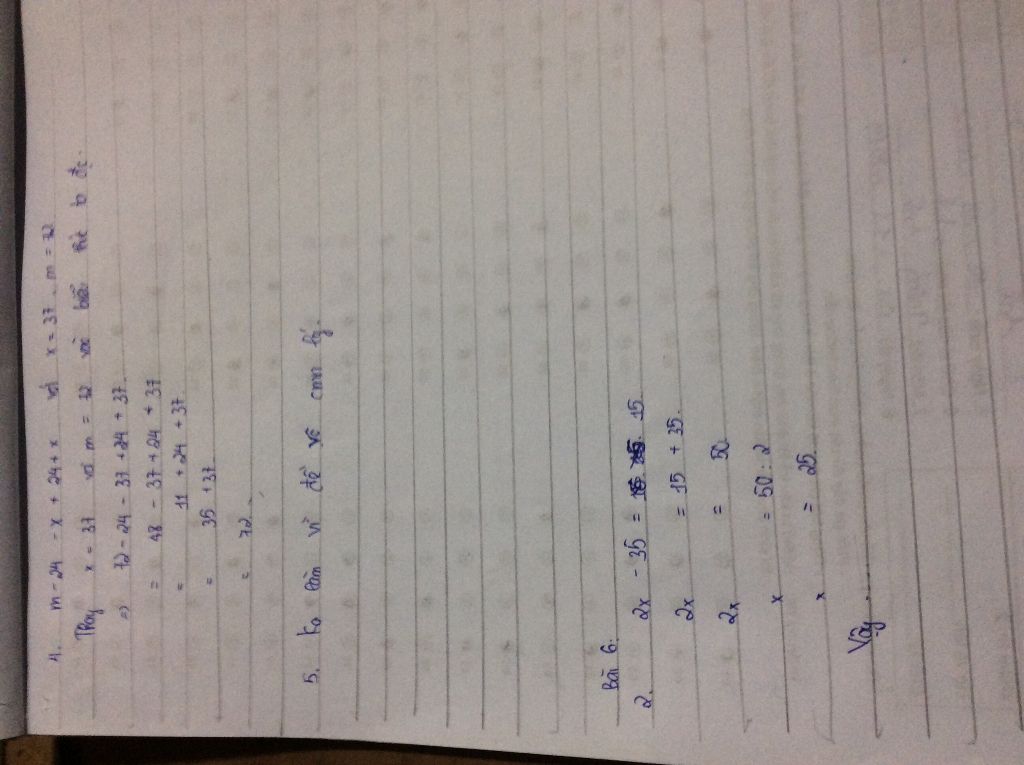 4. m - 24 - x + 24 + x với x = 37, m = 72
Thay x = 37 và m = 72 vào biểu thức ta đc.
=> 72 - 24 - 37 + 24 + 37
= 48 - 37 + 24 + 37
= 11 + 24 + 37
= 35 + 37
= 72.
5. ko làm vì đề
Bài 6:
2. 2x - 35 = 15
2x = 15 + 35.
2x = 50
x = 50 : 2
x = 25.
Vậy .....